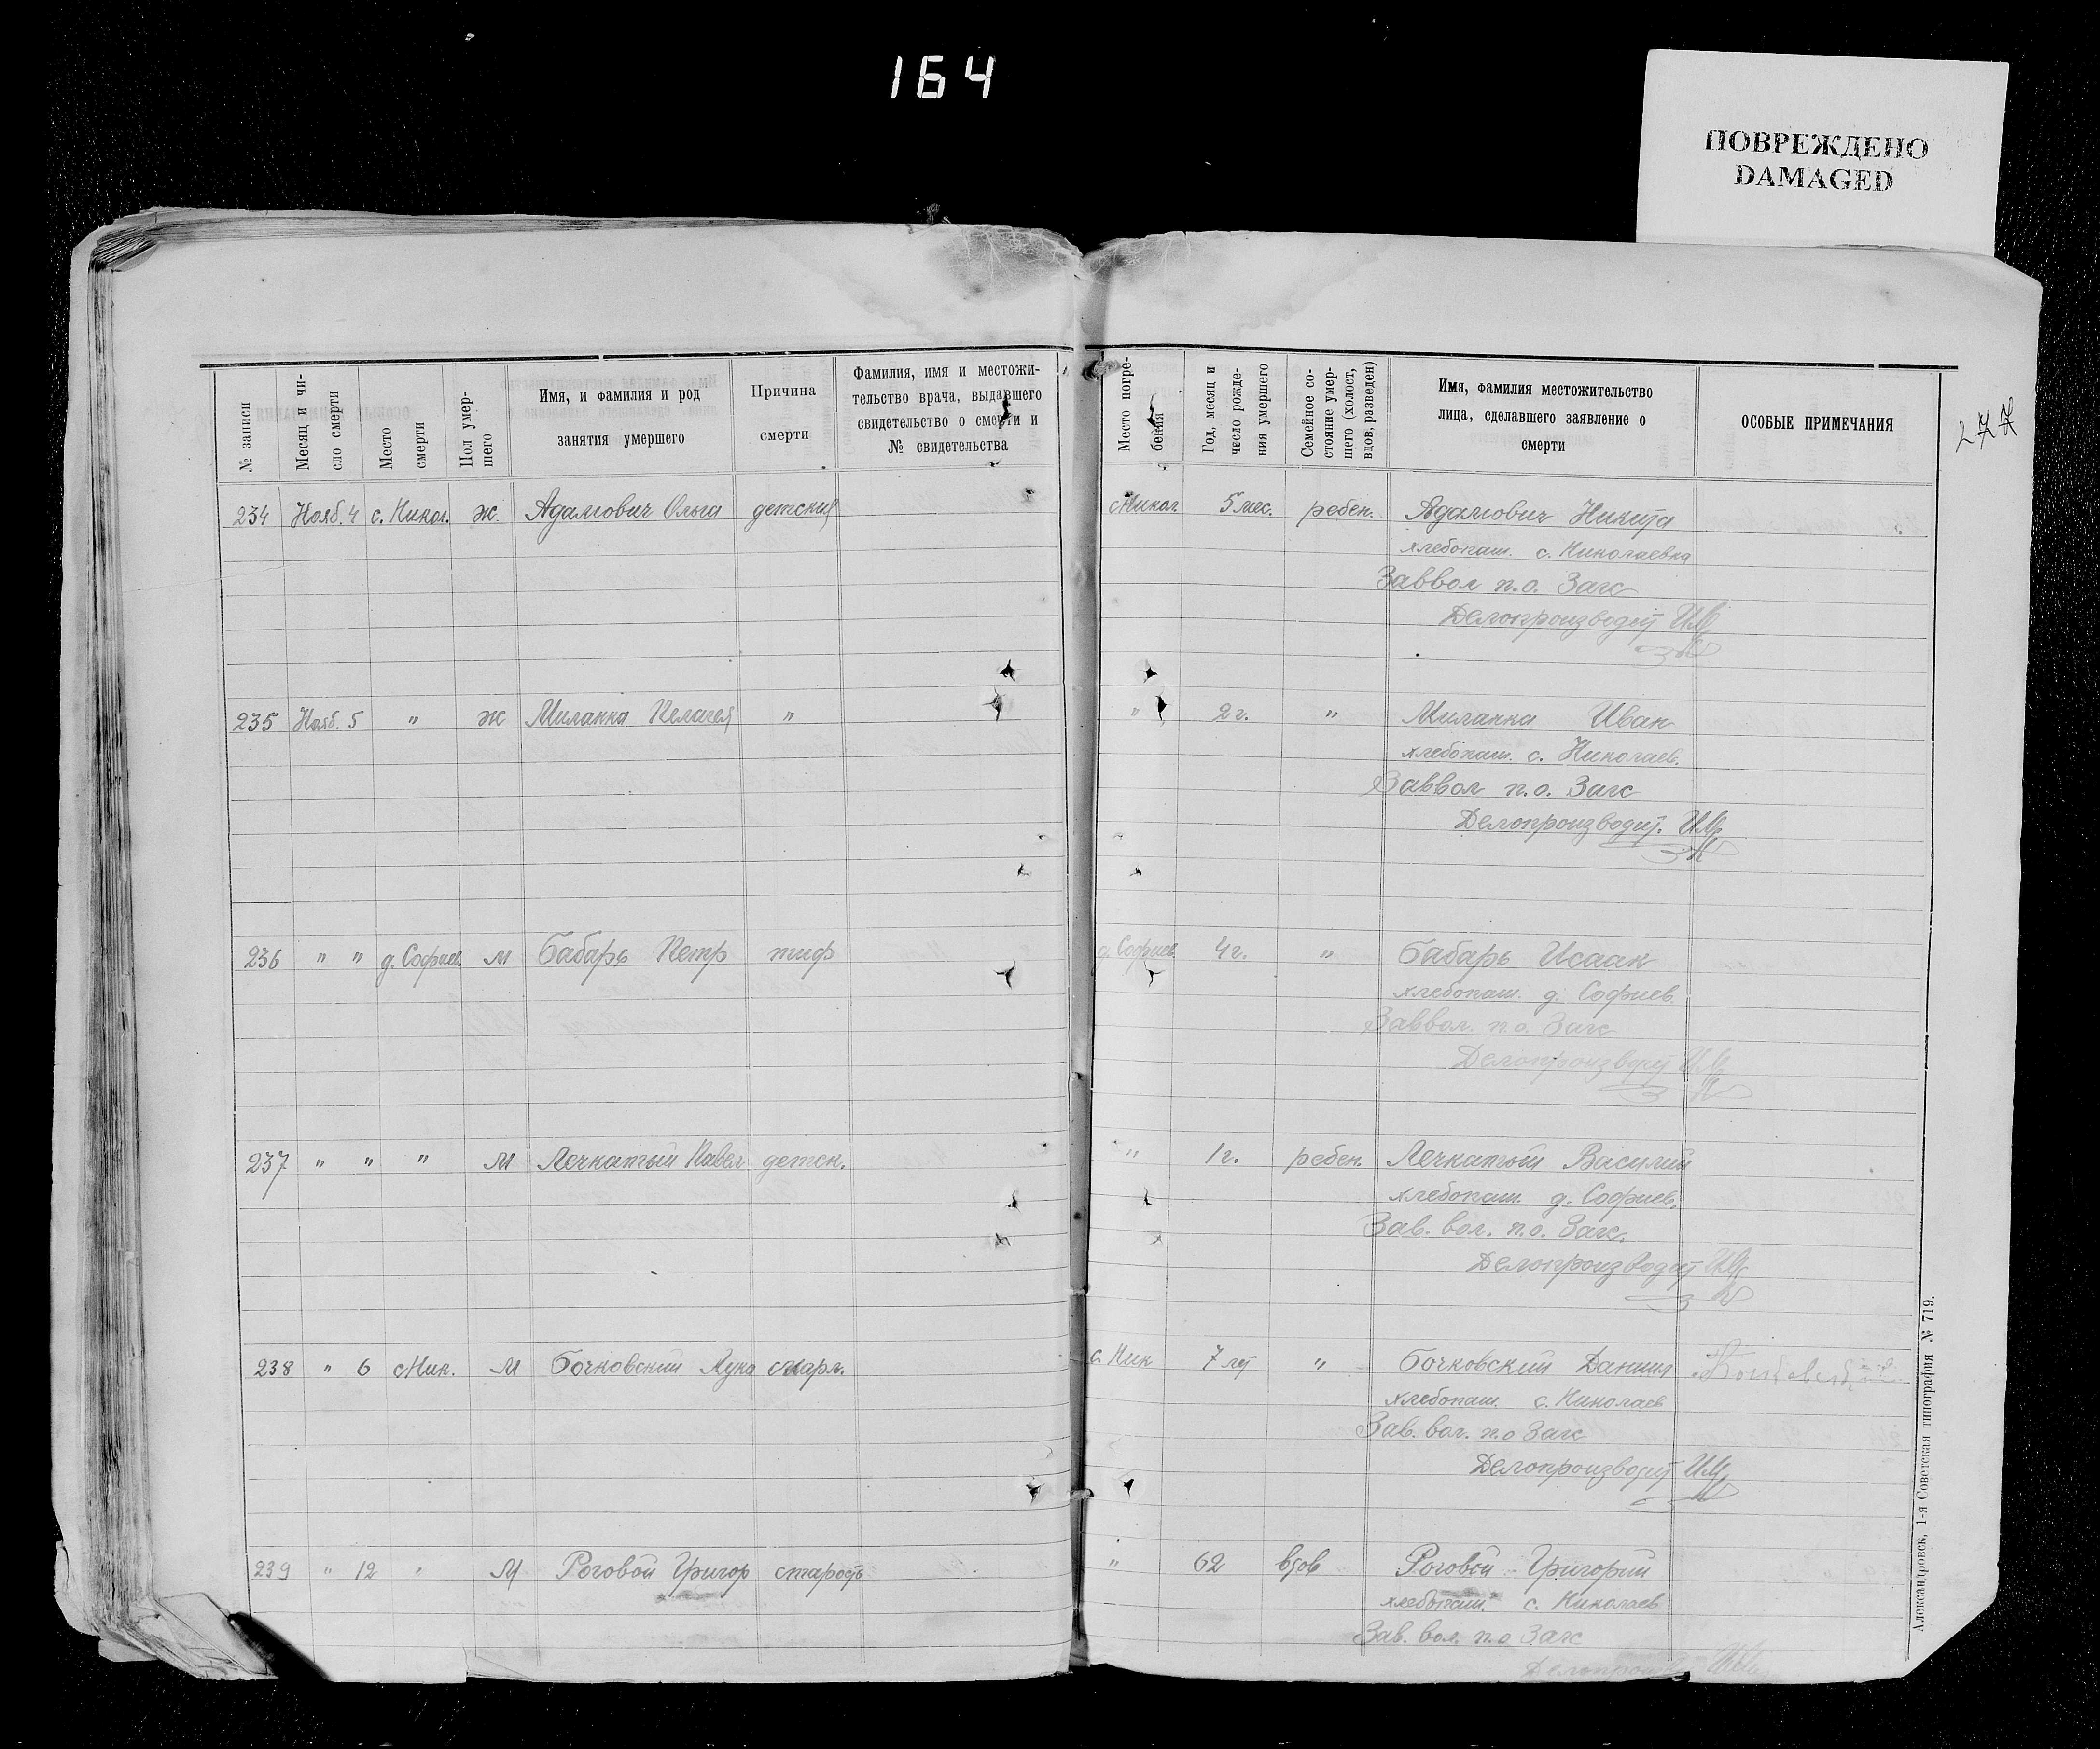 164
ПОВРЕЖДЕНО
DAMAGED
277
№ записи
Месяц и чи-
сло смерти
Место
смерти
Пол умер-
шего
Имя, и фамилия и род
занятия умершего
Причина
смерти
Фамилия, имя и местожи-
тельство врача, выдавшего
свидетельство о смерти и
№ свидетельства
Место погре-
бения
Год, месяц и
число рожде-
ния умершего
Семейное со-
стояние умер-
шего (холост,
вдов, разведен)
Имя, фамилия местожительство
лица, сделавшего заявление о
смерти
ОСОБЫЕ ПРИМЕЧАНИЯ
234 Нояб. 4 с. Никол. ж. Адамович Ольга детский с Никол 5 мес. ребен. Адамович Никита
хлебопаш. с. Николаевка
Заввол п.о. Загс
Делопроизводит
235 Нояб. 5 " ж Миланка Пелагея " " 2 г. " Миланка Иван
хлебопаш. с. Николаев.
Заввол п.о. Загс
Делопроизводит.
236 " " д. Софиев. м Бабарь Петр тиф д. Софиев. 4 г. " Бабарь Исаак
хлебопаш. д. Софиев
Заввол. п.о. Загс
Делопроизводит
237 " " " м Легкатый Павел детск. " 1 г. ребен. Легкатый Василий
хлебопаш. д. Софиев.
Зав. вол. п.о. Загс.
Делопроизводит
238 " 6 с Ник. м Бочковский Лука скарл. с. Ник 7 лет " Бочковский Даниил
хлебопаш. с. Николаев
Зав. вол. п.о Загс
Делопроизводит
239 " 12 " м Роговой Григор старость " 62 вдов Роговой Григорий
хлебопаш. с. Николаев
Зав. вол. п.о Загс
Александровск, 1-я Советская типография № 719.